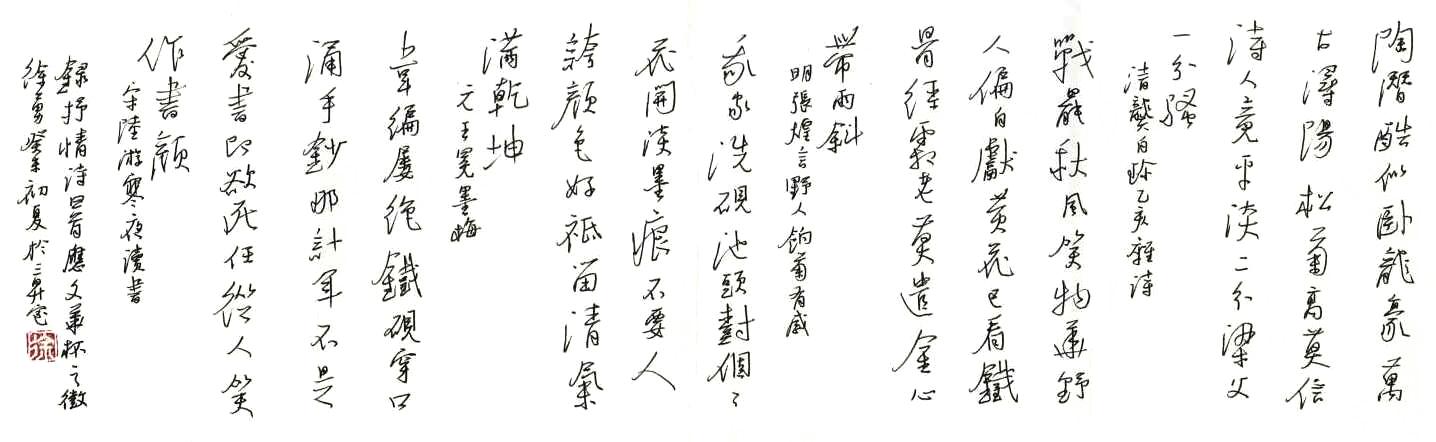 陶潛酷似臥龍豪萬
古潯陽松菊高莫信
詩人竟平淡二分梁父
一分騷
清龔自珍己亥雜詩
戰罷秋風笑物華野
人偏自獻黃花已看鐵
骨經霜老莫遣金心
帶雨斜
明張煌言野人餉菊有感
我家洗硯池頭樹個〻
花開淡墨痕不要人
誇顏色好祗留清氣
滿乾坤
元王冕墨梅
韋編屢絕鐵硯穿口
誦手鈔那計年不是
愛書即欲死任從人笑
作書顛
宋陸游寒夜讀書
錄抒情詩四首應文華杯之徵
徐勇癸未初夏於三昇室
徐